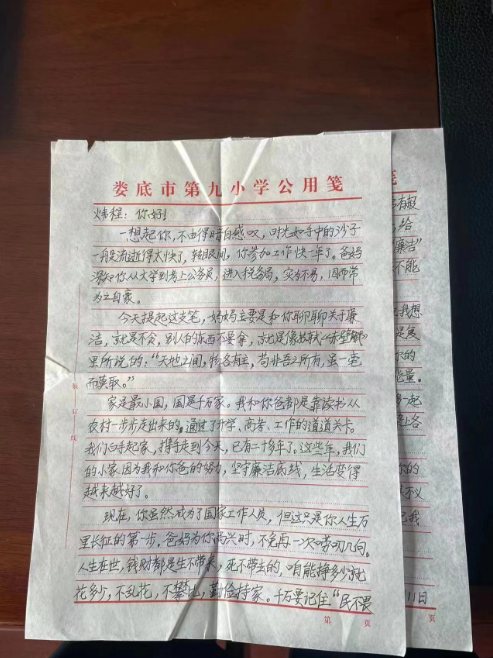 娄底市第九小学公用笺
炜程：你好！
一想起你，不由得暗自感叹，时光如手中的沙子
一般流逝得太快了，转眼间，你参加工作快一年了。爸妈
深知你从大学到考上公务员，进入税务局，实为不易，因而常
为之自豪。
今天提起这支笔，妈妈主要是和你聊聊关于廉
洁，就是不贪，别人的东西不要拿，就是像出自《赤壁赋》
里所说的："天地之间，物各有主，苟非吾之所有，虽一毫
而莫取。"
家是最小国，国是千万家。我和你爸都是靠读书从
农村一步步走出来的。通过了升学、高考、工作的道道关卡。
我们白手起家，携手走到今天，已有二十多年了。这些年，我们
的小家因为我和你爸的努力，坚守廉洁底线，生活变得
越来越好了。
现在，你虽然成为了国家工作人员，但这只是你人生万
里长征的第一步。爸妈为你高兴时，不免再一次唠叨几句。
人生在世，钱财都是生不带来，死不带去的，咱能挣多少就
花多少，不乱花，不攀比，勤俭持家。千万要记住"民不畏
第 页
第 页
笺
给
廉洁"
不能
我想
是
你的
能量。
一起
你的
我
11日